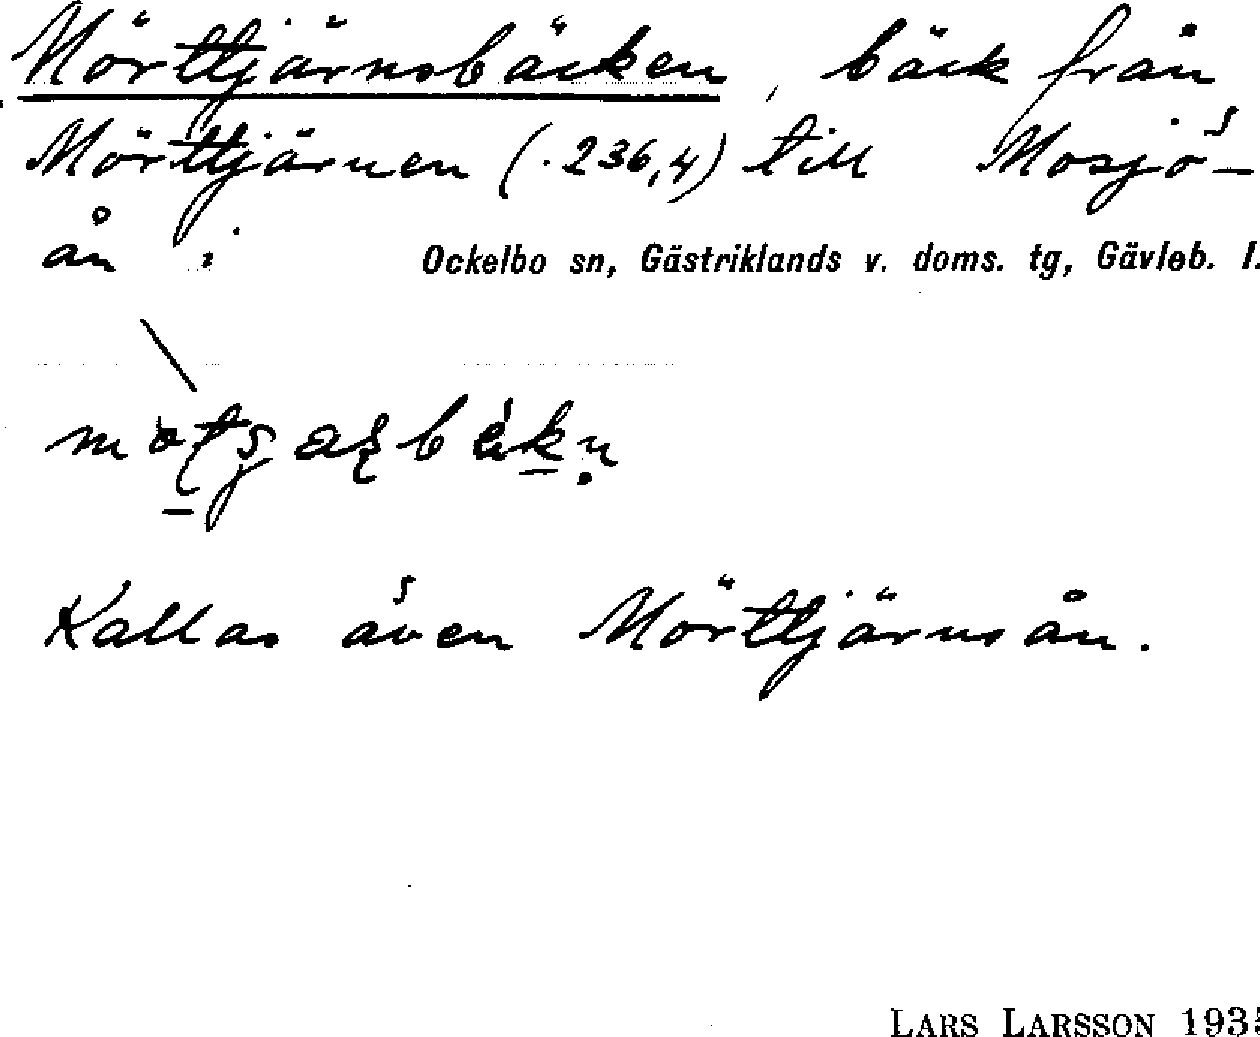 Mörttjärnsbäcken, bäck från
Mörttjärnen (. 236,4) till Mosjö-
ån i
Ockelbo sn, Gästriklands v. doms. tg, Gävleb. l.
Kallas även Mörttjärnsån.
LARS LARSSON 1935